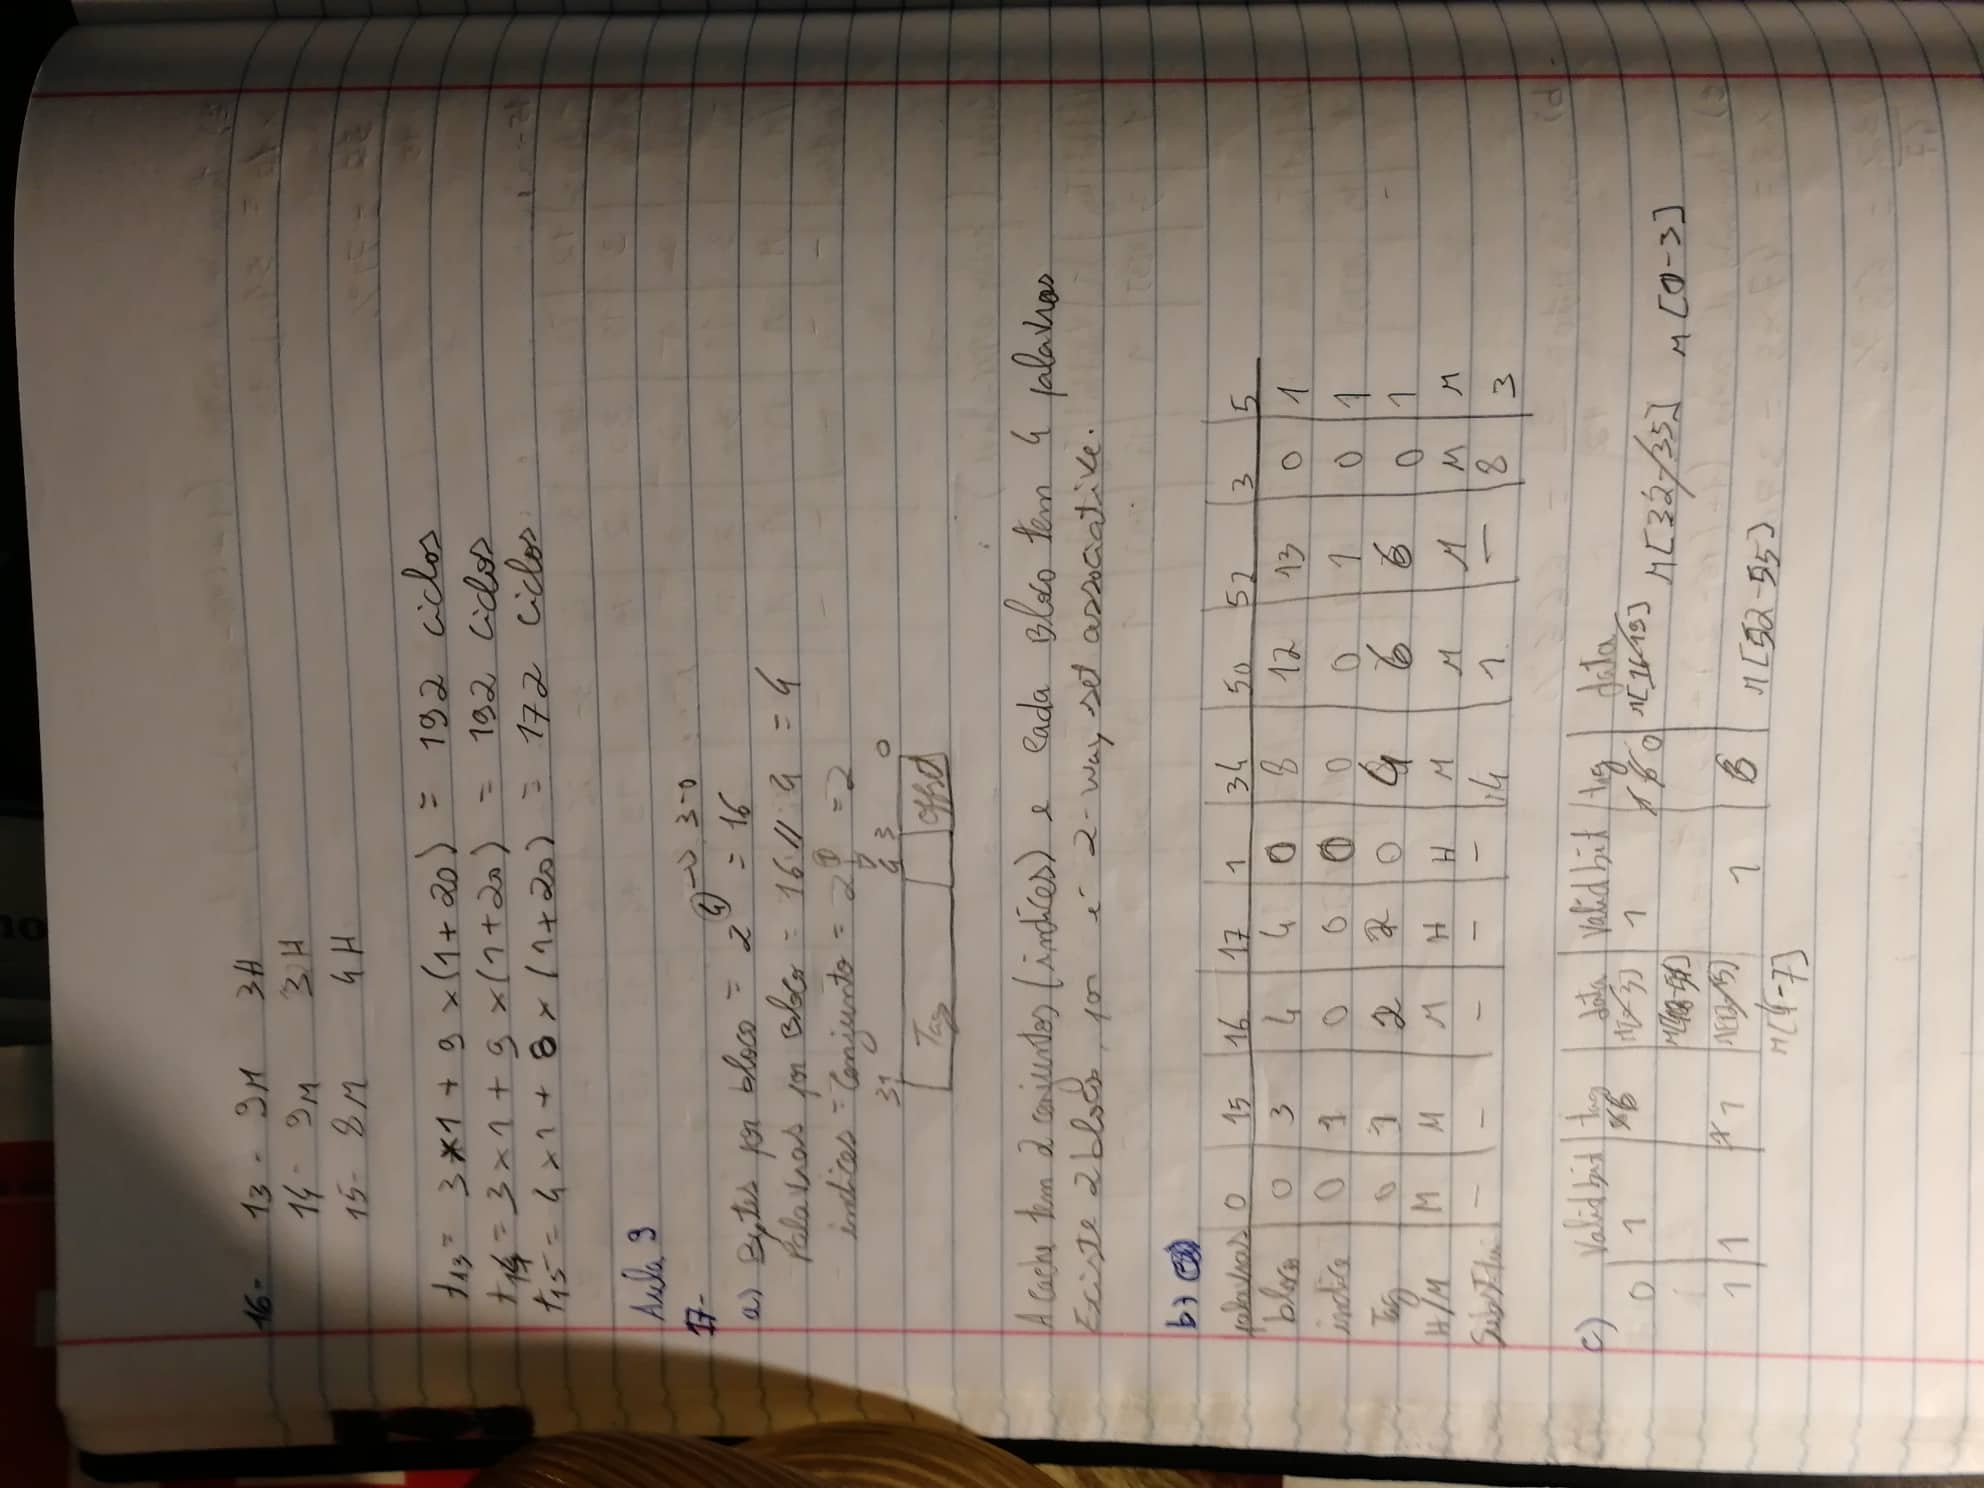 16- 13 - 9M 3H
14 - 9M 3H
15 - 8M 4H
t13 = 3×1 + 9×(1+20) = 192 ciclos
t14 = 3×1 + 9×(1+20) = 192 ciclos
t15 = 4×1 + 8×(1+20) = 172 ciclos
Aula 9
17-
a) Bytes por bloco = 2^4 → 3-0 = 16
Palavras por Bloco = 16 // 4 = 4
indices = Conjunto = 2^1 = 2
31 4 3 0
Tag offset
A Cache tem 2 conjuntos (indices) e cada Bloco tem 4 palavras
Existe 2 blocos, por i 2-way set associative.
b)
palavras 0 15 16 17 1 34 50 52 3 5
bloco 0 3 4 4 0 8 12 13 0 1
indice 0 1 0 0 0 0 0 1 0 1
Tag 0 1 2 2 0 4 6 6 0 1
H/M M M M H H M M M M M
Substitui - - - - - 4 1 - 8 3
c) Valid bit tag data Valid bit tag data
0 1 6 1 0 M[16-19] M[32-35] M[0-3]
1 1 1 1 6 M[52-55]
M[4-7]